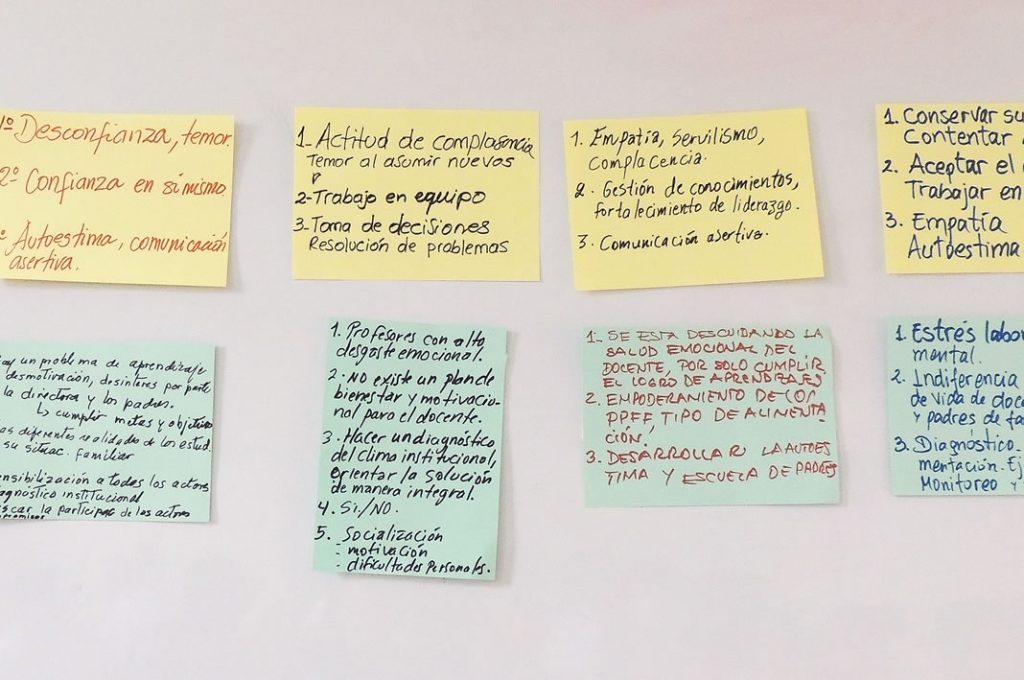 1º Desconfianza, temor.
2º Confianza en si mismo
Autoestima, comunicación
asertiva.
1- Actitud de complasencia
Temor al asumir nuevas
2- Trabajo en equipo
3- Toma de decisiones
Resolución de problemas
1. Empatía, servilismo,
complacencia.
2. Gestión de conocimientos,
fortalecimiento de liderazgo.
3. Comunicación asertiva.
1. Conservar su
Contentar
2. Aceptar el
Trabajar en
3. Empatía
Autoestima
un problema de aprendizaje
desmotivación, desinteres por parte
la directora y los padres.
↳ cumplir metas y objetivos
as diferentes realidades de los estud.
su situac. familiar
ensibilización a todos los actores
agnóstico institucional
scar la particip de los actores
1. Profesores con alto
desgaste emocional.
2. No existe un plan de
bienestar y motivacio-
nal para el docente.
3. Hacer un diagnóstico
del clima institucional,
orientar la solución
de manera integral.
4. Si/NO.
5. Socialización
- motivación
- dificultades personales.
1. SE ESTA DESCUIDANDO LA
SALUD EMOCIONAL DEL
DOCENTE, POR SOLO CUMPLIR
EL LOGRO DE APRENDIZAJES
2. EMPODERAMIENTO DE LOS
PPFF, TIPO DE ALIMENTA
CIÓN.
3. DESARROLLAR LA AUTOES
TIMA Y ESCUELA DE PADRES
1. Estrés labo
mental.
2. Indiferencia
de vida de doce
y padres de fa
3. Diagnóstico.
mentación. Ej
Monitoreo y